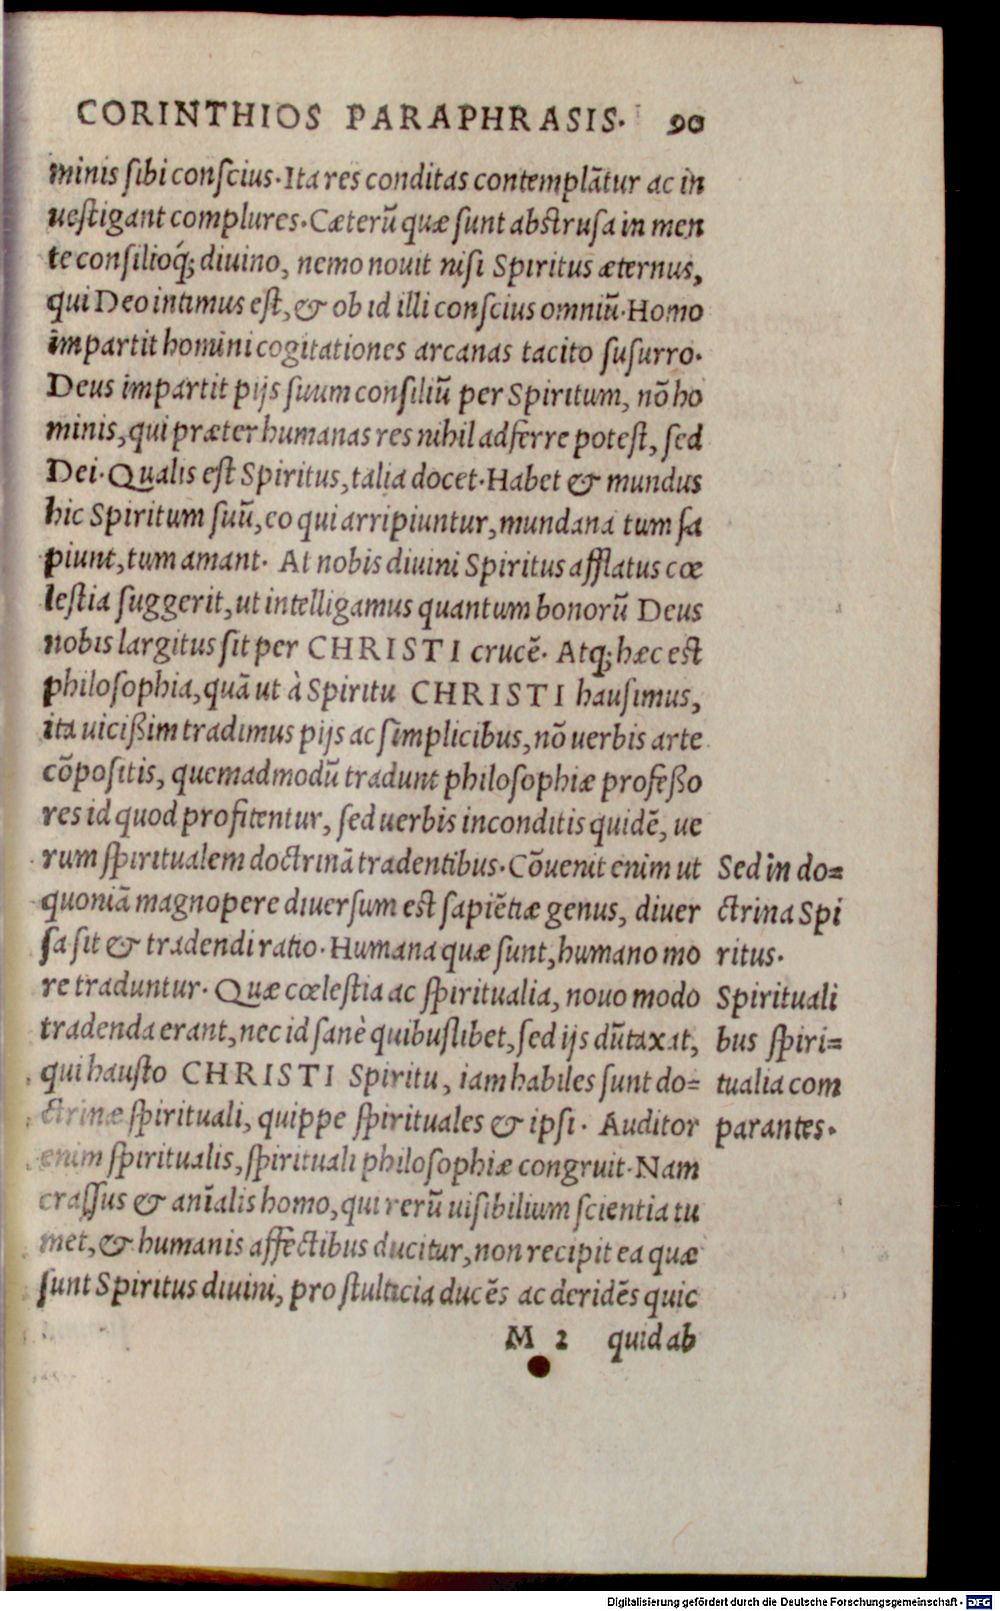 CORINTHIOS PARAPHRASIS. 90
minis sibi conscius. Ita res conditas contemplātur ac in
uestigant complures. Cæterū quæ sunt abstrusa in men
te consilioq́; diuino, nemo nouit nisi Spiritus æternus,
qui Deo intimus est, & ob id illi conscius omniū. Homo
impartit homini cogitationes arcanas tacito susurro.
Deus impartit pijs suum consiliū per Spiritum, nō ho
minis, qui præter humanas res nihil adferre potest, sed
Dei. Qualis est Spiritus, talia docet. Habet & mundus
hic Spiritum suū, eo qui arripiuntur, mundana tum sa
piunt, tum amant. At nobis diuini Spiritus afflatus cœ
lestia suggerit, ut intelligamus quantum bonorū Deus
nobis largitus sit per CHRISTI crucē. Atq; hæc est
philosophia, quā ut à Spiritu CHRISTI hausimus,
ita uicißim tradimus pijs ac simplicibus, nō uerbis arte
cōpositis, quemadmodū tradunt philosophiæ profeßo
res id quod profitentur, sed uerbis inconditis quidē, ue
rum spiritualem doctrinā tradentibus. Cōuenit enim ut
quoniā magnopere diuersum est sapiētiæ genus, diuer
sa sit & tradendi ratio. Humana quæ sunt, humano mo
re traduntur. Quæ cœlestia ac spiritualia, nouo modo
tradenda erant, nec id sanè quibuslibet, sed ijs dūtaxat,
qui hausto CHRISTI Spiritu, iam habiles sunt do=
ctrinæ spirituali, quippe spirituales & ipsi. Auditor
enim spiritualis, spirituali philosophiæ congruit. Nam
crassus & anīalis homo, qui rerū uisibilium scientia tu
met, & humanis affectibus ducitur, non recipit ea quæ
sunt Spiritus diuini, pro stulticia ducēs ac deridēs quic
M 2 quid ab
Sed in do=
ctrina Spi
ritus.
Spirituali
bus spiri=
tualia com
parantes.
Digitalisierung gefördert durch die Deutsche Forschungsgemeinschaft - DFG